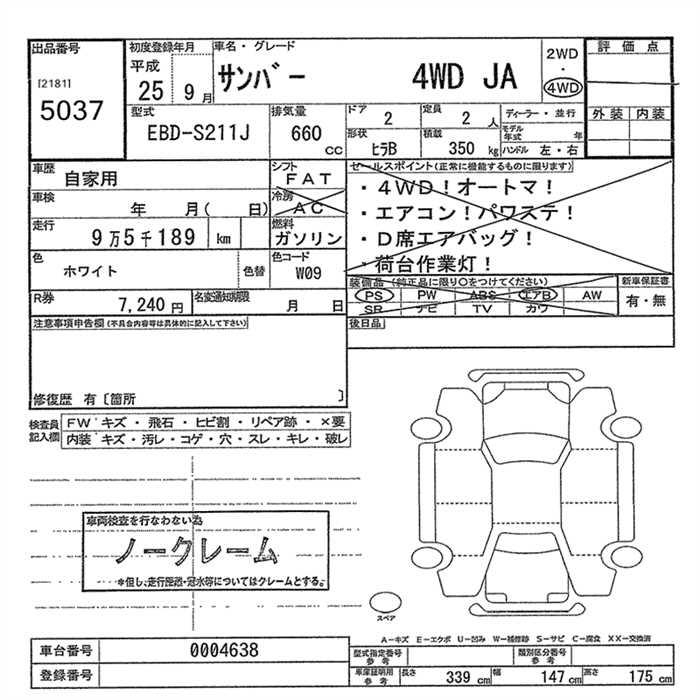 出品番号
[2181]
5037
初度登録年月
平成
25 9月
車名・グレード
サンバー 4WD JA
2WD
・
4WD
評価点
外装 内装
型式
EBD-S211J
排気量
660
CC
ドア
2
定員
2 人
形状
ヒラB
積載
350 kg
ディーラー・並行
モデル年式 年
ハンドル 左・右
車歴
自家用
シフト
FAT
車検
年 月( 日)
冷房
AC
走行
9万5千189 km
燃料
ガソリン
色
ホワイト
色替
色コード
W09
R券
7,240円
名変通知期限
月 日
セールスポイント(正常に機能するものに限ります)
・4WD!オートマ!
・エアコン!パワステ!
・D席エアバッグ!
・荷台作業灯!
装備品(純正品に限り○をつけてください)
PS PW ABS エアB AW
SR ナビ TV カワ
新車保証書
有・無
注意事項申告欄(不具合内容等は具体的に記入して下さい)
後日品
修復歴 有〔箇所 〕
検査員
記入欄
FW キズ・飛石・ヒビ割・リペア跡・×要
内装 キズ・汚レ・コゲ・穴・スレ・キレ・破レ
車両検査を行なわない為
ノークレーム
*但し、走行距離・冠水等についてはクレームとする。
スペア
A－キズ E－エクボ U－凹み W－補修跡 S－サビ C－腐食 XX－交換済
車台番号 0004638
登録番号
型式指定番号
参考
類別区分番号
参考
車庫証明用
参考
長さ 339 cm 幅 147 cm 高さ 175 cm